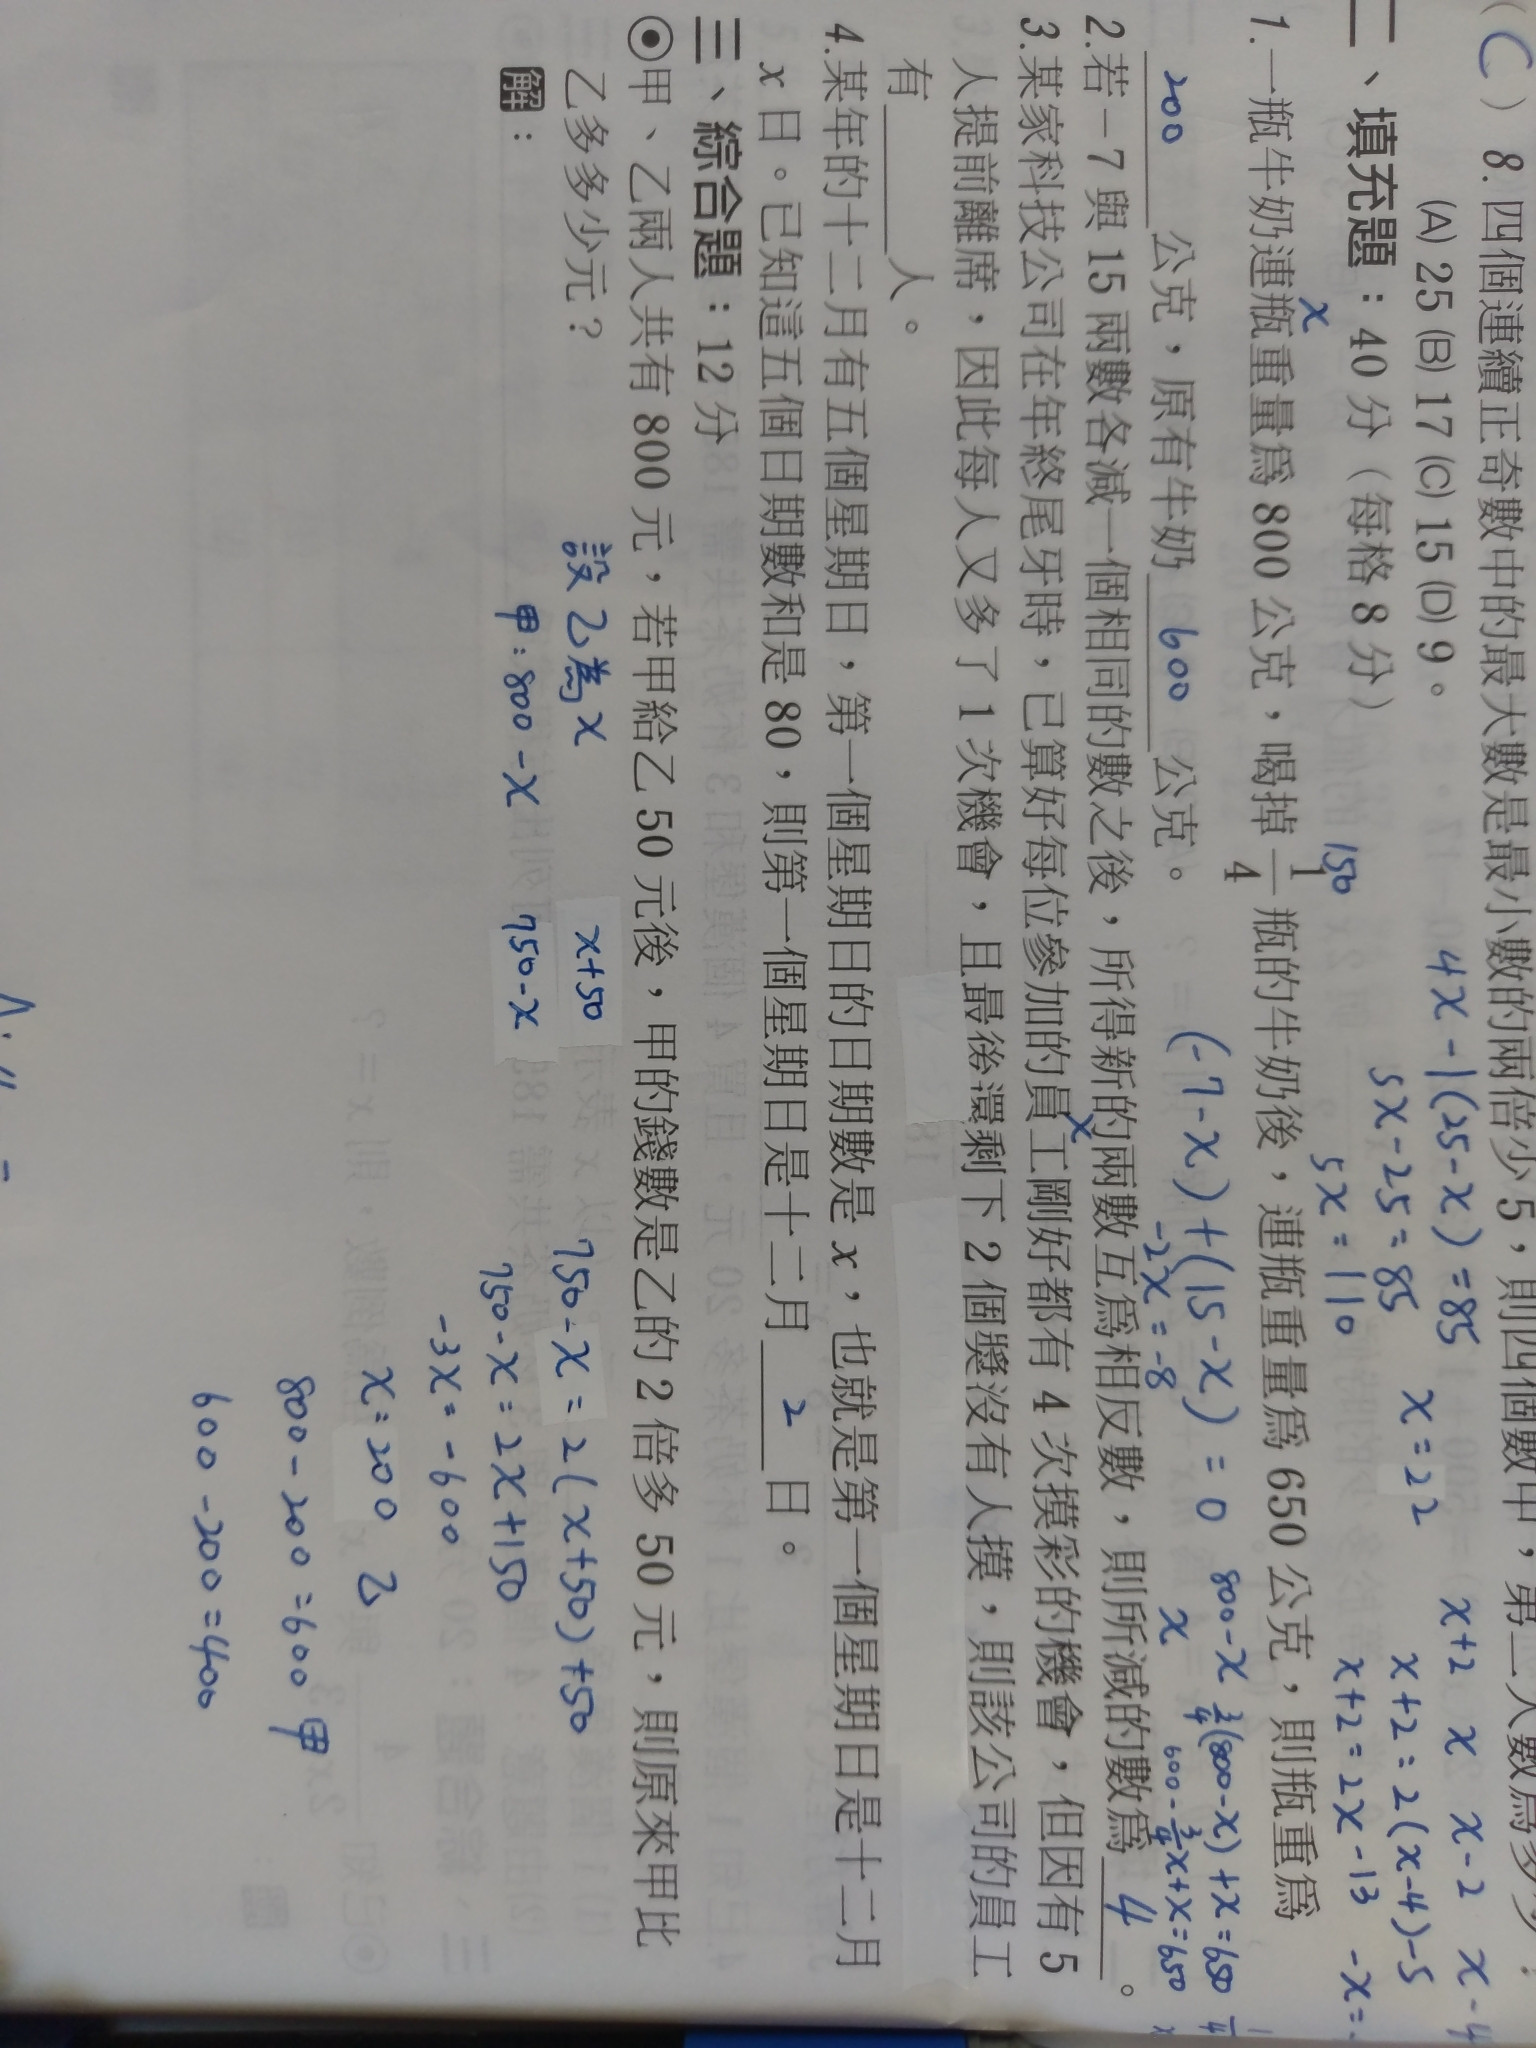 (C) 8.四個連續正奇數中的最大數是最小數的兩倍少5,則四個數中,第二大數爲多少?
(A) 25 (B) 17 (C) 15 (D) 9。
4x-1(25-x)=85
5x-25=85
5x=110
x=22
x+2 x x-2 x-4
x+2=2(x-4)-5
x+2=2x-13
-x=
二、填充題:40分(每格8分)
x
150
1.一瓶牛奶連瓶重量爲800公克,喝掉1/4瓶的牛奶後,連瓶重量爲650公克,則瓶重爲
200 公克,原有牛奶 600 公克。
(-7-x)+(15-x)=0
-2x=-8
x
800-x
x
3/4(800-x)+x=650
600-3/4x+x=650
2.若-7與15兩數各減一個相同的數之後,所得新的兩數互爲相反數,則所減的數爲 4 。
3.某家科技公司在年終尾牙時,已算好每位參加的員工剛好都有4次摸彩的機會,但因有5
人提前離席,因此每人又多了1次機會,且最後還剩下2個獎沒有人摸,則該公司的員工
有 人。
4.某年的十二月有五個星期日,第一個星期日的日期數是x,也就是第一個星期日是十二月
x日。已知這五個日期數和是80,則第一個星期日是十二月 2 日。
三、綜合題:12分
◎甲、乙兩人共有800元,若甲給乙50元後,甲的錢數是乙的2倍多50元,則原來甲比
乙多多少元?
解:
設乙為x
甲:800-x
x+50
750-x
750-x=2(x+50)+50
750-x=2x+150
-3x=-600
x=200 乙
800-200=600 甲
600-200=400